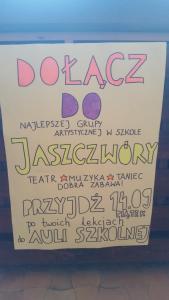 DOŁĄCZ
DO
NAJLEPSZEJ GRUPY
ARTYSTYCZNEJ W SZKOLE
JASZCZWÓRY
TEATR ☆ MUZYKA ☆ TANIEC
DOBRA ZABAWA!
PRZYJDŹ 14.09
PIĄTEK
po twoich lekcjach
do AULI SZKOLNEJ